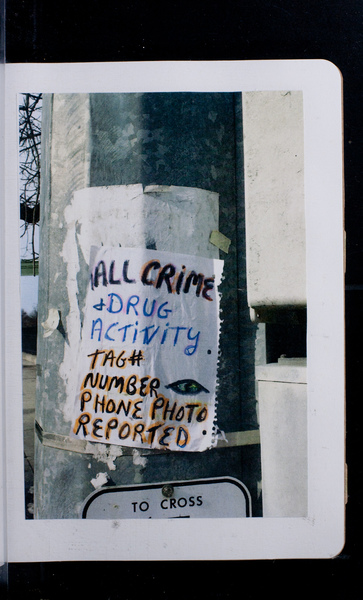 ALL CRIME
& DRUG
ACTIVITY.
TAG#
NUMBER
PHONE PHOTO
REPORTED.
TO CROSS